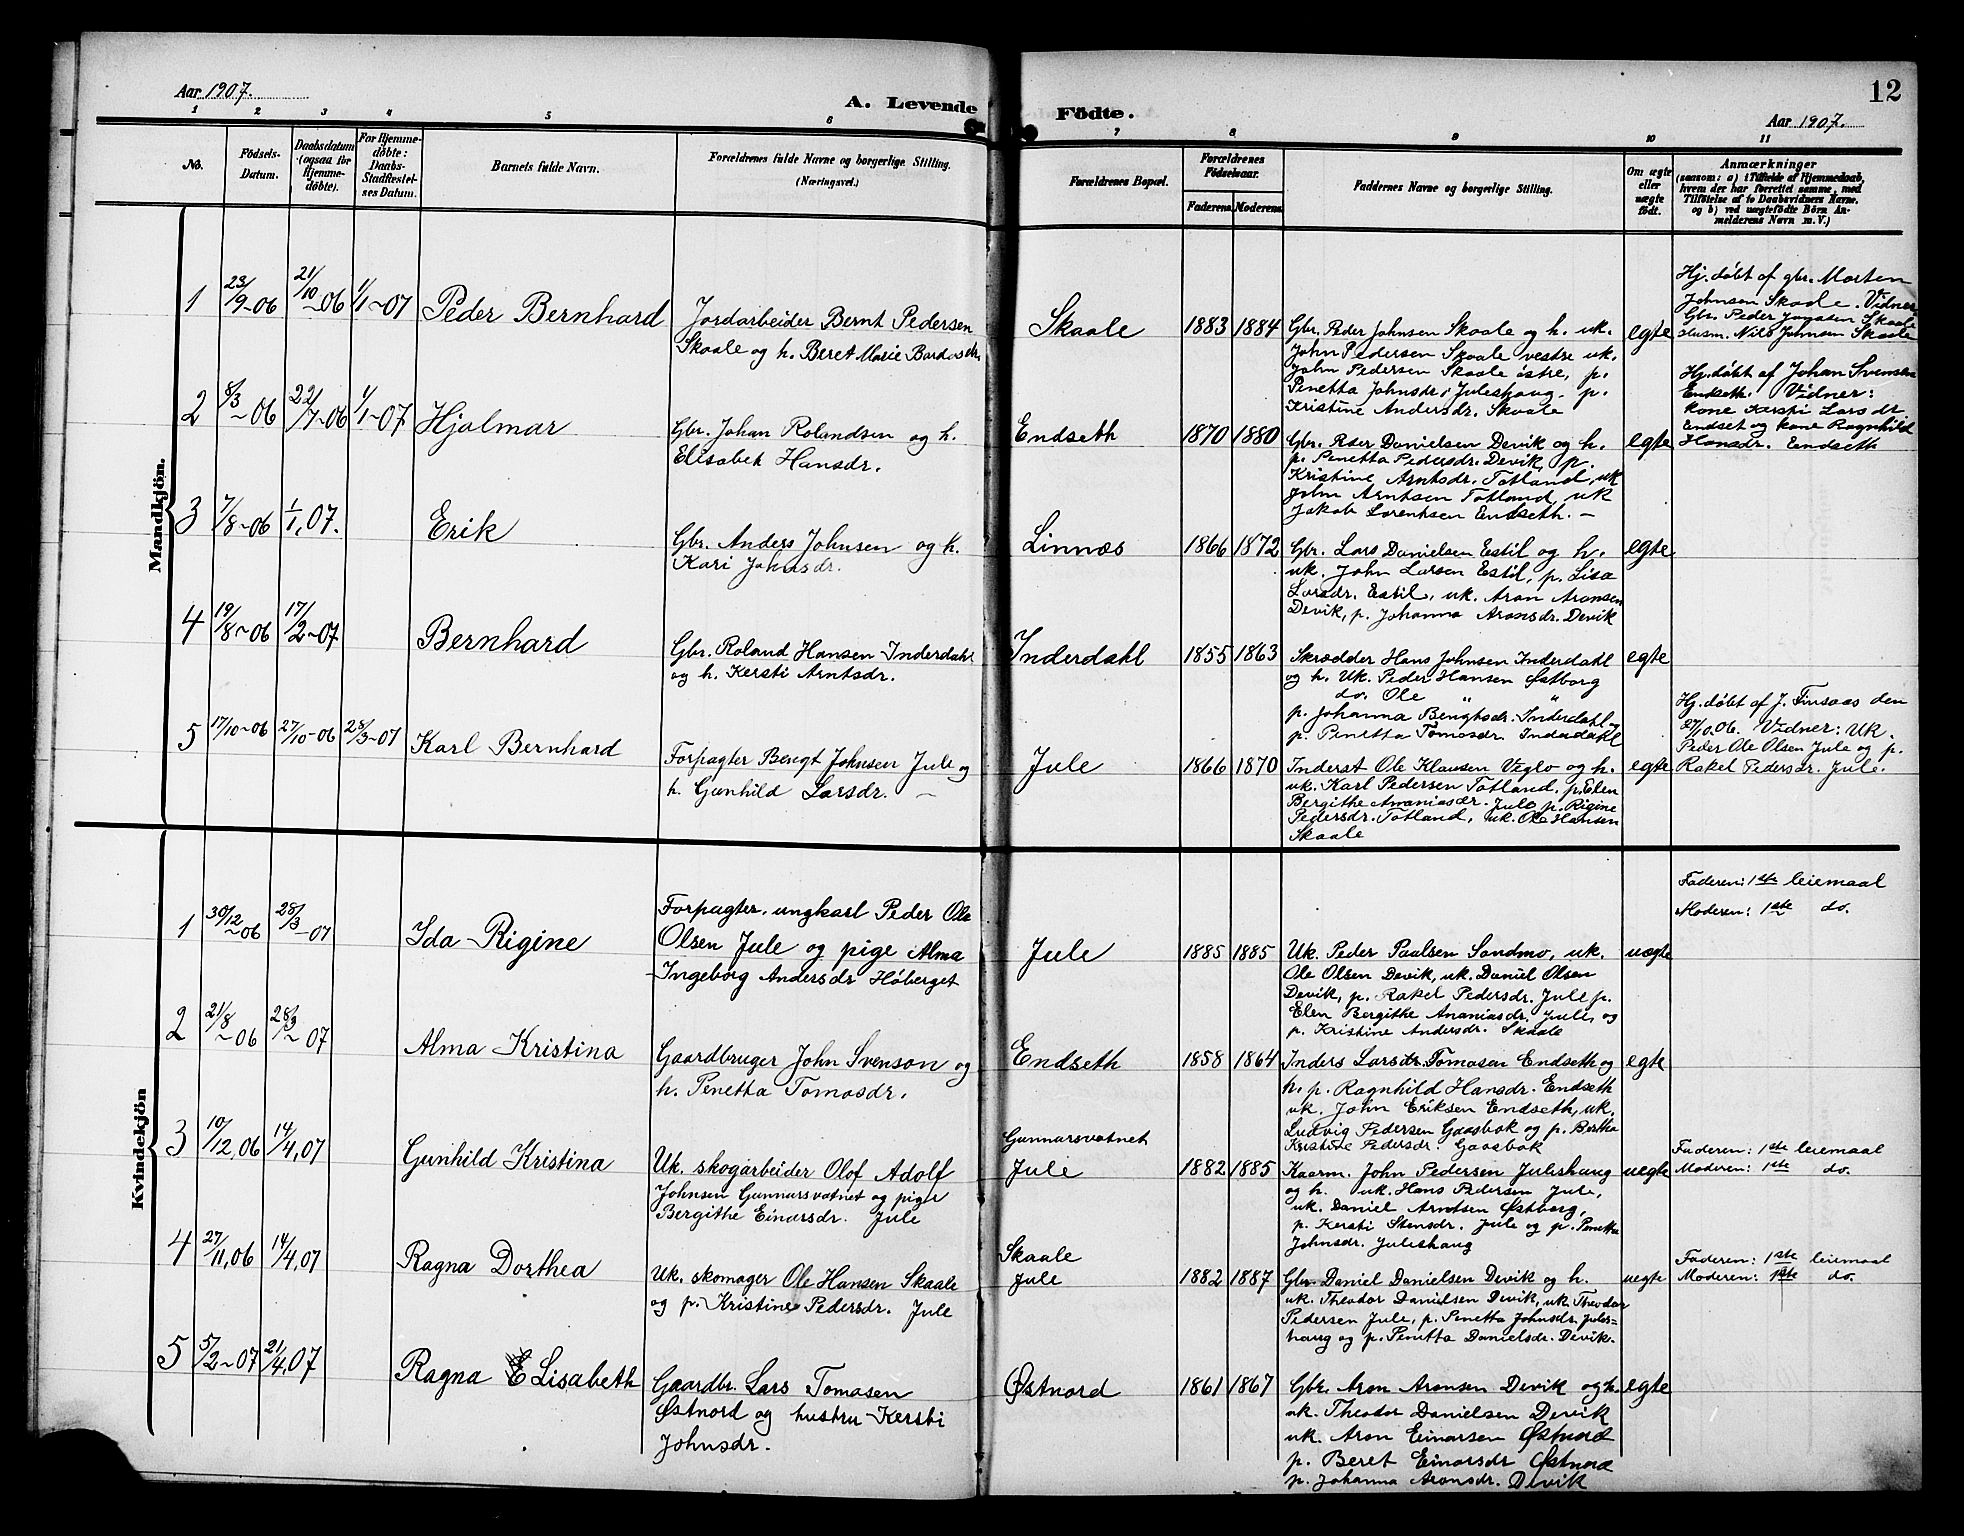 12
Aar 1907.
A. Levende Födte.
Aar 1907.
1 2 3 4 5 6 7 8 9 10 11
No.
Födsels-
Datum.
Daabsdatum
(ogsaa for
Hjemme-
døbte).
For Hjemme-
døbte:
Daabs-
Stadfæstel-
ses Datum.
Barnets fulde Navn.
Forældrenes fulde Navne og borgerlige Stilling.
(Næringsvei.)
Forældrenes Bopæl.
Forældrenes
Födselsaar.
Faderens Moderens
Faddernes Navne og borgerlige Stilling.
Om ægte
eller
uægte
födt.
Anmærkninger
(saasom: a) i Tilfælde af Hjemmedaab,
hvem der har forrettet samme, med
Tilföielse af to Daabsvidners Navne,
og b) ved uægtefödte Börn An-
melderens Navn m. V.)
Mandkjön.
1 23/9-06 21/10-06 1/1-07 Peder Bernhard
Jordarbeider Bernt Pedersen
Skaale og h. Beret Marie Bardosdtr.
Skaale 1883 1884
Gbr. Peder Johnsen Skaale og h. uk.
John Pedersen Skaale vestre uk.
John Pedersen Skaale östre, p.
Penetta Johnsdr. Juleshaug, p.
Kristine Andersdr. Skaale
egte
Hj. döbt af gbr. Morten
Johnsen Skaale. Vidner
Gbr. Peder Skaale
Husm. Nils Johnsen Skaale
2 8/3-06 22/7-06 1/1-07 Hjalmar
Gbr. Johan Rolandsen og h.
Elisabet Hansdr.
Endseth 1870 1880
Gbr. Peder Danielsen Devik og h.
p. Penetta Pedersdr. Devik, p.
Kristine Arntsdr. Totland, uk
John Arntsen Totland, uk
Jakob Lorentsen Endseth. –
egte
Hj. döbt af Johan Svensen
Endseth. Vidner:
kone Kersti Larsdr
Endset og kone Ragnhild
Hansdr. Endseth
3 7/8-06 1/1, 07. Erik
Gbr. Anders Johnsen og h.
Kari Johnsdr.
Linnæs 1866 1872
Gbr. Lars Danielsen Estil og h.
uk. John Larsen Estil, p. Lisa
Larsdr. Estil, uk. Aron Aronsen
Devik, p. Johanna Aronsdr. Devik
egte
4 19/8-06 17/2-07 Bernhard
Gbr. Roland Hansen Inderdahl
og h. Kersti Arntsdr.
Inderdahl 1855 1863
Skrædder Hans Johnsen Inderdahl
og h. Uk. Peder Hansen Østborg
do. Ole " "
p. Johanna Bengtsdr. Inderdahl og
p. Penetta Tomasdr. Inderdahl
egte
5 17/10-06 27/10-06 28/3-07 Karl Bernhard
Forpagter Bengt Johnsen Jule og
h. Gunhild Larsdr. –
Jule 1866 1870
Inderst Ole Klausen Veglo og h.
uk. Karl Pedersen Totland, p. Elen
Bergithe Ananiasdr. Jule, p. Rigine
Pedersdr. Totland, uk. Ole Hansen
Skaale
egte
Hj. döbt af J. Finsaas den
27/10.06. Vidner: Uk.
Peder Ole Olsen Jule og p.
Rakel Pedersdr. Jule.
Kvindekjön
1 30/12-06 28/3-07 Ida Rigine
Forpagter, ungkarl Peder Ole
Olsen Jule og pige Alma
Ingeborg Andersdr Höberget
Jule 1885 1885
Uk. Peder Paulsen Sandmo, uk.
Ole Olsen Devik, uk. Daniel Olsen
Devik, p. Rakel Pedersdr. Jule p.
Elen Bergithe Ananiasdr. Jule, og
p. Kristine Andersdr. Skaale
uegte
Faderen: 1ste leiemaal
Moderen: 1ste do.
2 21/8-06 28/3-07 Alma Kristina
Gaardbruger John Svenson og
h. Penetta Tomasdr.
Endseth 1858 1864
Inders Larsdr. Tomasen Endseth og
h. p. Ragnhild Hansdr. Endseth
uk. John Eriksen Endseth, uk.
Ludvig Pedersen Gaasbak og p. Bertha
Kristine Pedersdr. Gaasbak
egte
3 10/12,06 14/4,07 Gunhild Kristina
Uk. skogarbeider Olof Adolf
Johnsen Gunnarsvatnet og pige
Bergithe Einarsdr. Jule
Gunnarsvatnet
Jule 1882 1885
Kaarm. John Pedersen Juleshaug
og h. uk. Hans Pedersen Jule,
uk. Daniel Arntsen Østborg,
p. Kersti Stensdr. Jule og p. Penetta
Johnsdr. Juleshaug
uegte
Faderen: 1ste leiemaal
Moderen: 1ste do.
4 27/11,06 14/4,07 Ragna Dorthea
Uk. skomager Ole Hansen Skaale
og p. Kristine Pedersdr. Jule
Skaale
Jule 1882 1887
Gbr. Daniel Danielsen Devik og h.
uk. Theodor Danielsen Devik, uk. Theodor
Pedersen Jule, p. Penetta Johnsdr. Jules-
haug og p. Penetta Danielsdr. Devik.
uegte
Faderen: 1ste leiemaal
Moderen: 1ste do.
5 5/2-07 21/4,07 Ragna Elisabeth
Gaardbr. Lars Tomasen
Østnord og hustru Kersti
Johnsdr.
Østnord 1861 1867
Gbr. Aron Aronsen Devik og h.
uk. Theodor Danielsen Devik
uk. Aron Einarsen Østnord
p. Beret Einarsdr Østnord
p. Johanna Aronsdr. Devik
egte